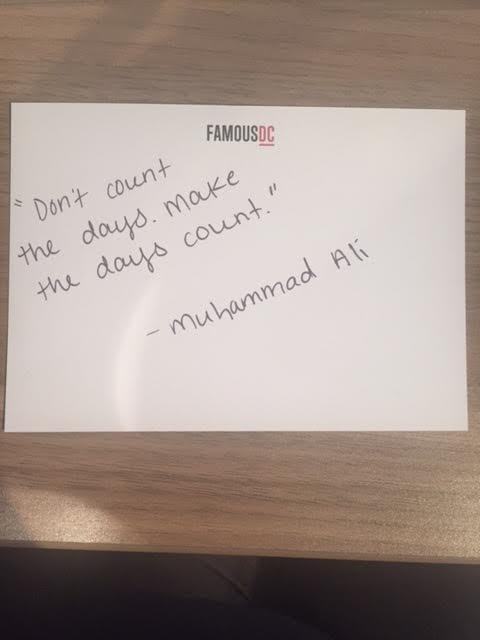 FAMOUSDC
"Don't count
the days. Make
the days count."
- Muhammad Ali